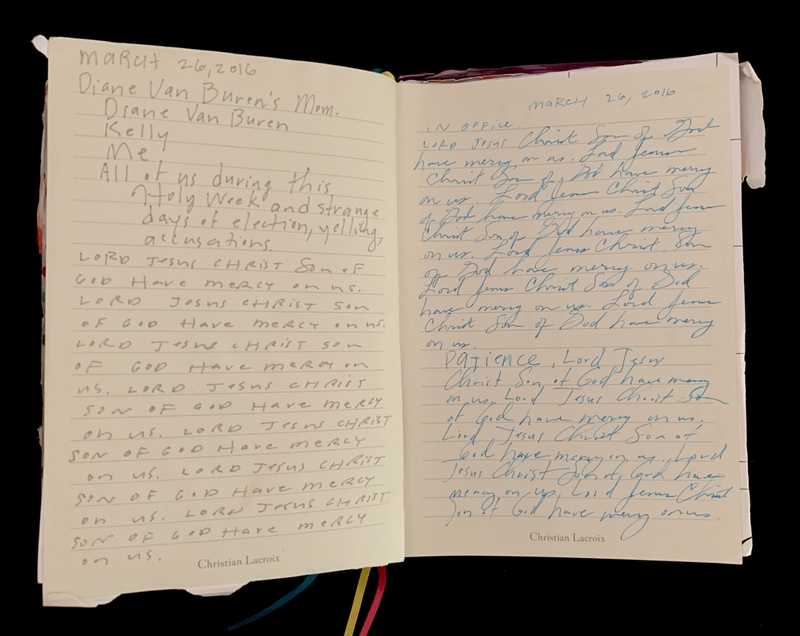 MARCH 26, 2016
Diane Van Buren's Mom.
Diane Van Buren
Kelly
Me
All of us during this
Holy Week and strange
days of election, yelling,
accusations.
LORD JESUS CHRIST SON OF
GOD HAVE MERCY ON US.
LORD JESUS CHRIST SON
OF GOD HAVE MERCY ON US.
LORD JESUS CHRIST SON
OF GOD HAVE MERCY ON
US. LORD JESUS CHRIST
SON OF GOD HAVE MERCY
ON US. LORD JESUS CHRIST
SON OF GOD HAVE MERCY
ON US. LORD JESUS CHRIST
SON OF GOD HAVE MERCY
ON US. LORD JESUS CHRIST
SON OF GOD HAVE MERCY
ON US.
Christian Lacroix
MARCH 26, 2016
IN OFFICE
LORD JESUS Christ Son of God
have mercy on us. Lord Jesus
Christ Son of God have mercy
on us. Lord Jesus Christ Son
of God have mercy on us. Lord Jesus
Christ Son of God have mercy
on us. Lord Jesus Christ Son
of God have mercy on us.
Lord Jesus Christ Son of God
have mercy on us. Lord Jesus
Christ Son of God have mercy
on us.
PATIENCE, Lord Jesus
Christ Son of God have mercy
on us. Lord Jesus Christ Son
of God have mercy on us.
Lord Jesus Christ Son of
God have mercy on us. Lord
Jesus Christ Son of God have
mercy on us. Lord Jesus Christ
Son of God have mercy on us.
Christian Lacroix